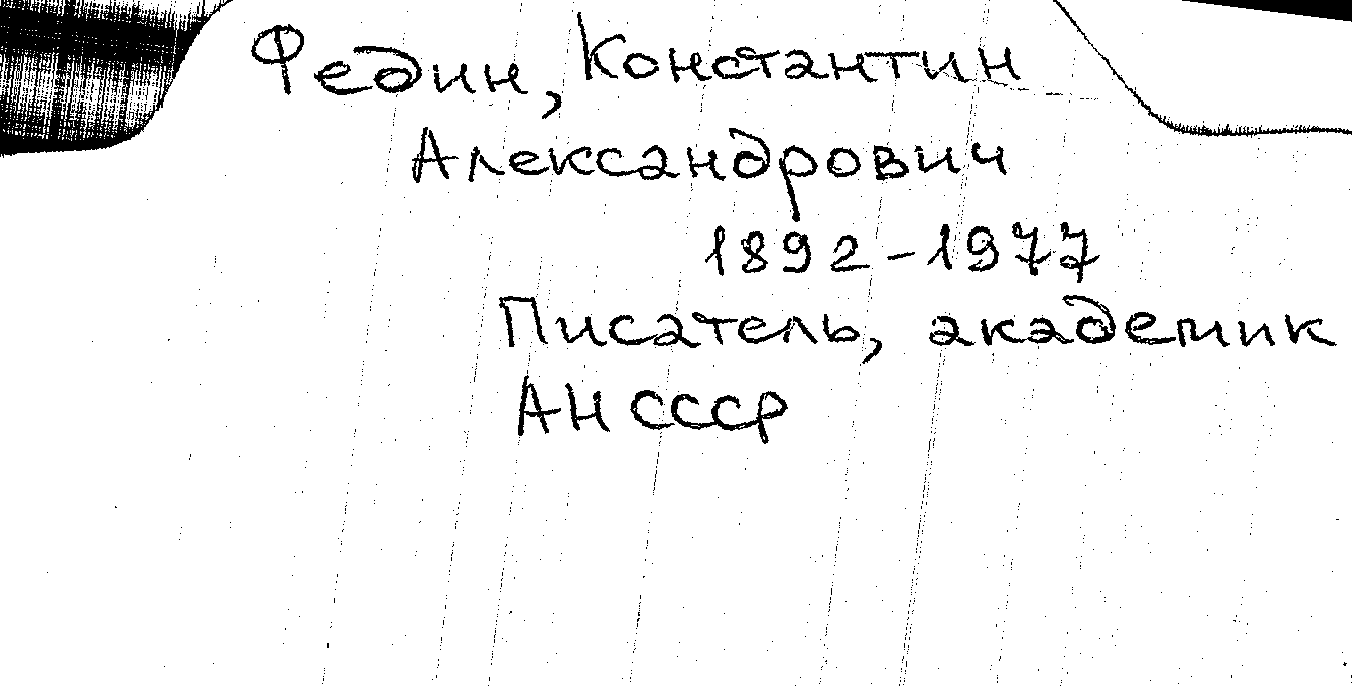 Федин, Константин
Александрович
1892-1977
Писатель, академик
АН СССР